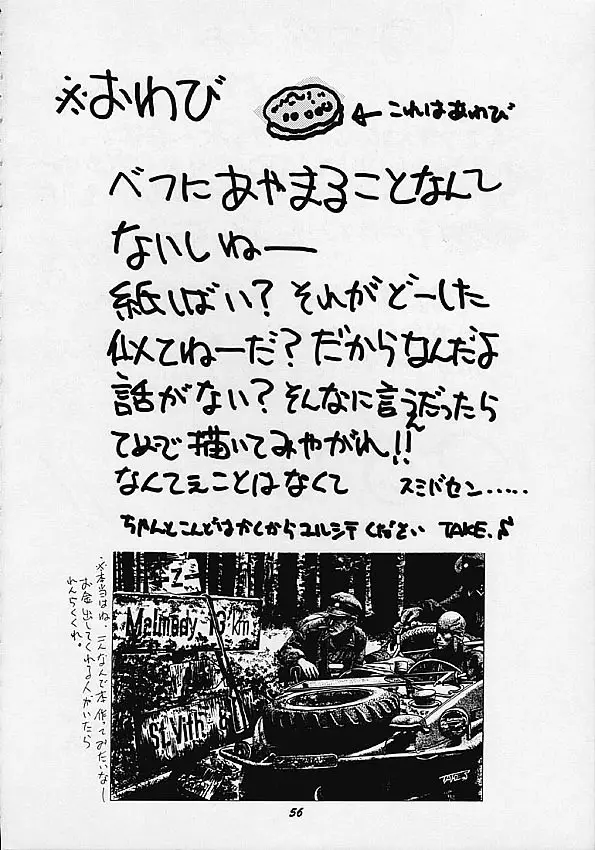 ※おわび
←これはあわび
べつにあやまることなんて
ないしねー
紙しばい？それがどーした
似てねーだ？だからなんだよ
話がない？そんなに言うんだったら
てめーで描いてみやがれ!!
なんてぇことはなくて　スミバセン……
ちゃんとこんどはかくからユルシテください TAKE.S
※本当はね、こんなんで本作ってみたいなー
お金出してくれる人がいたら
れんらくくれ。
Z
Malmedy 13 km
St.Vith
TAKE.S
56